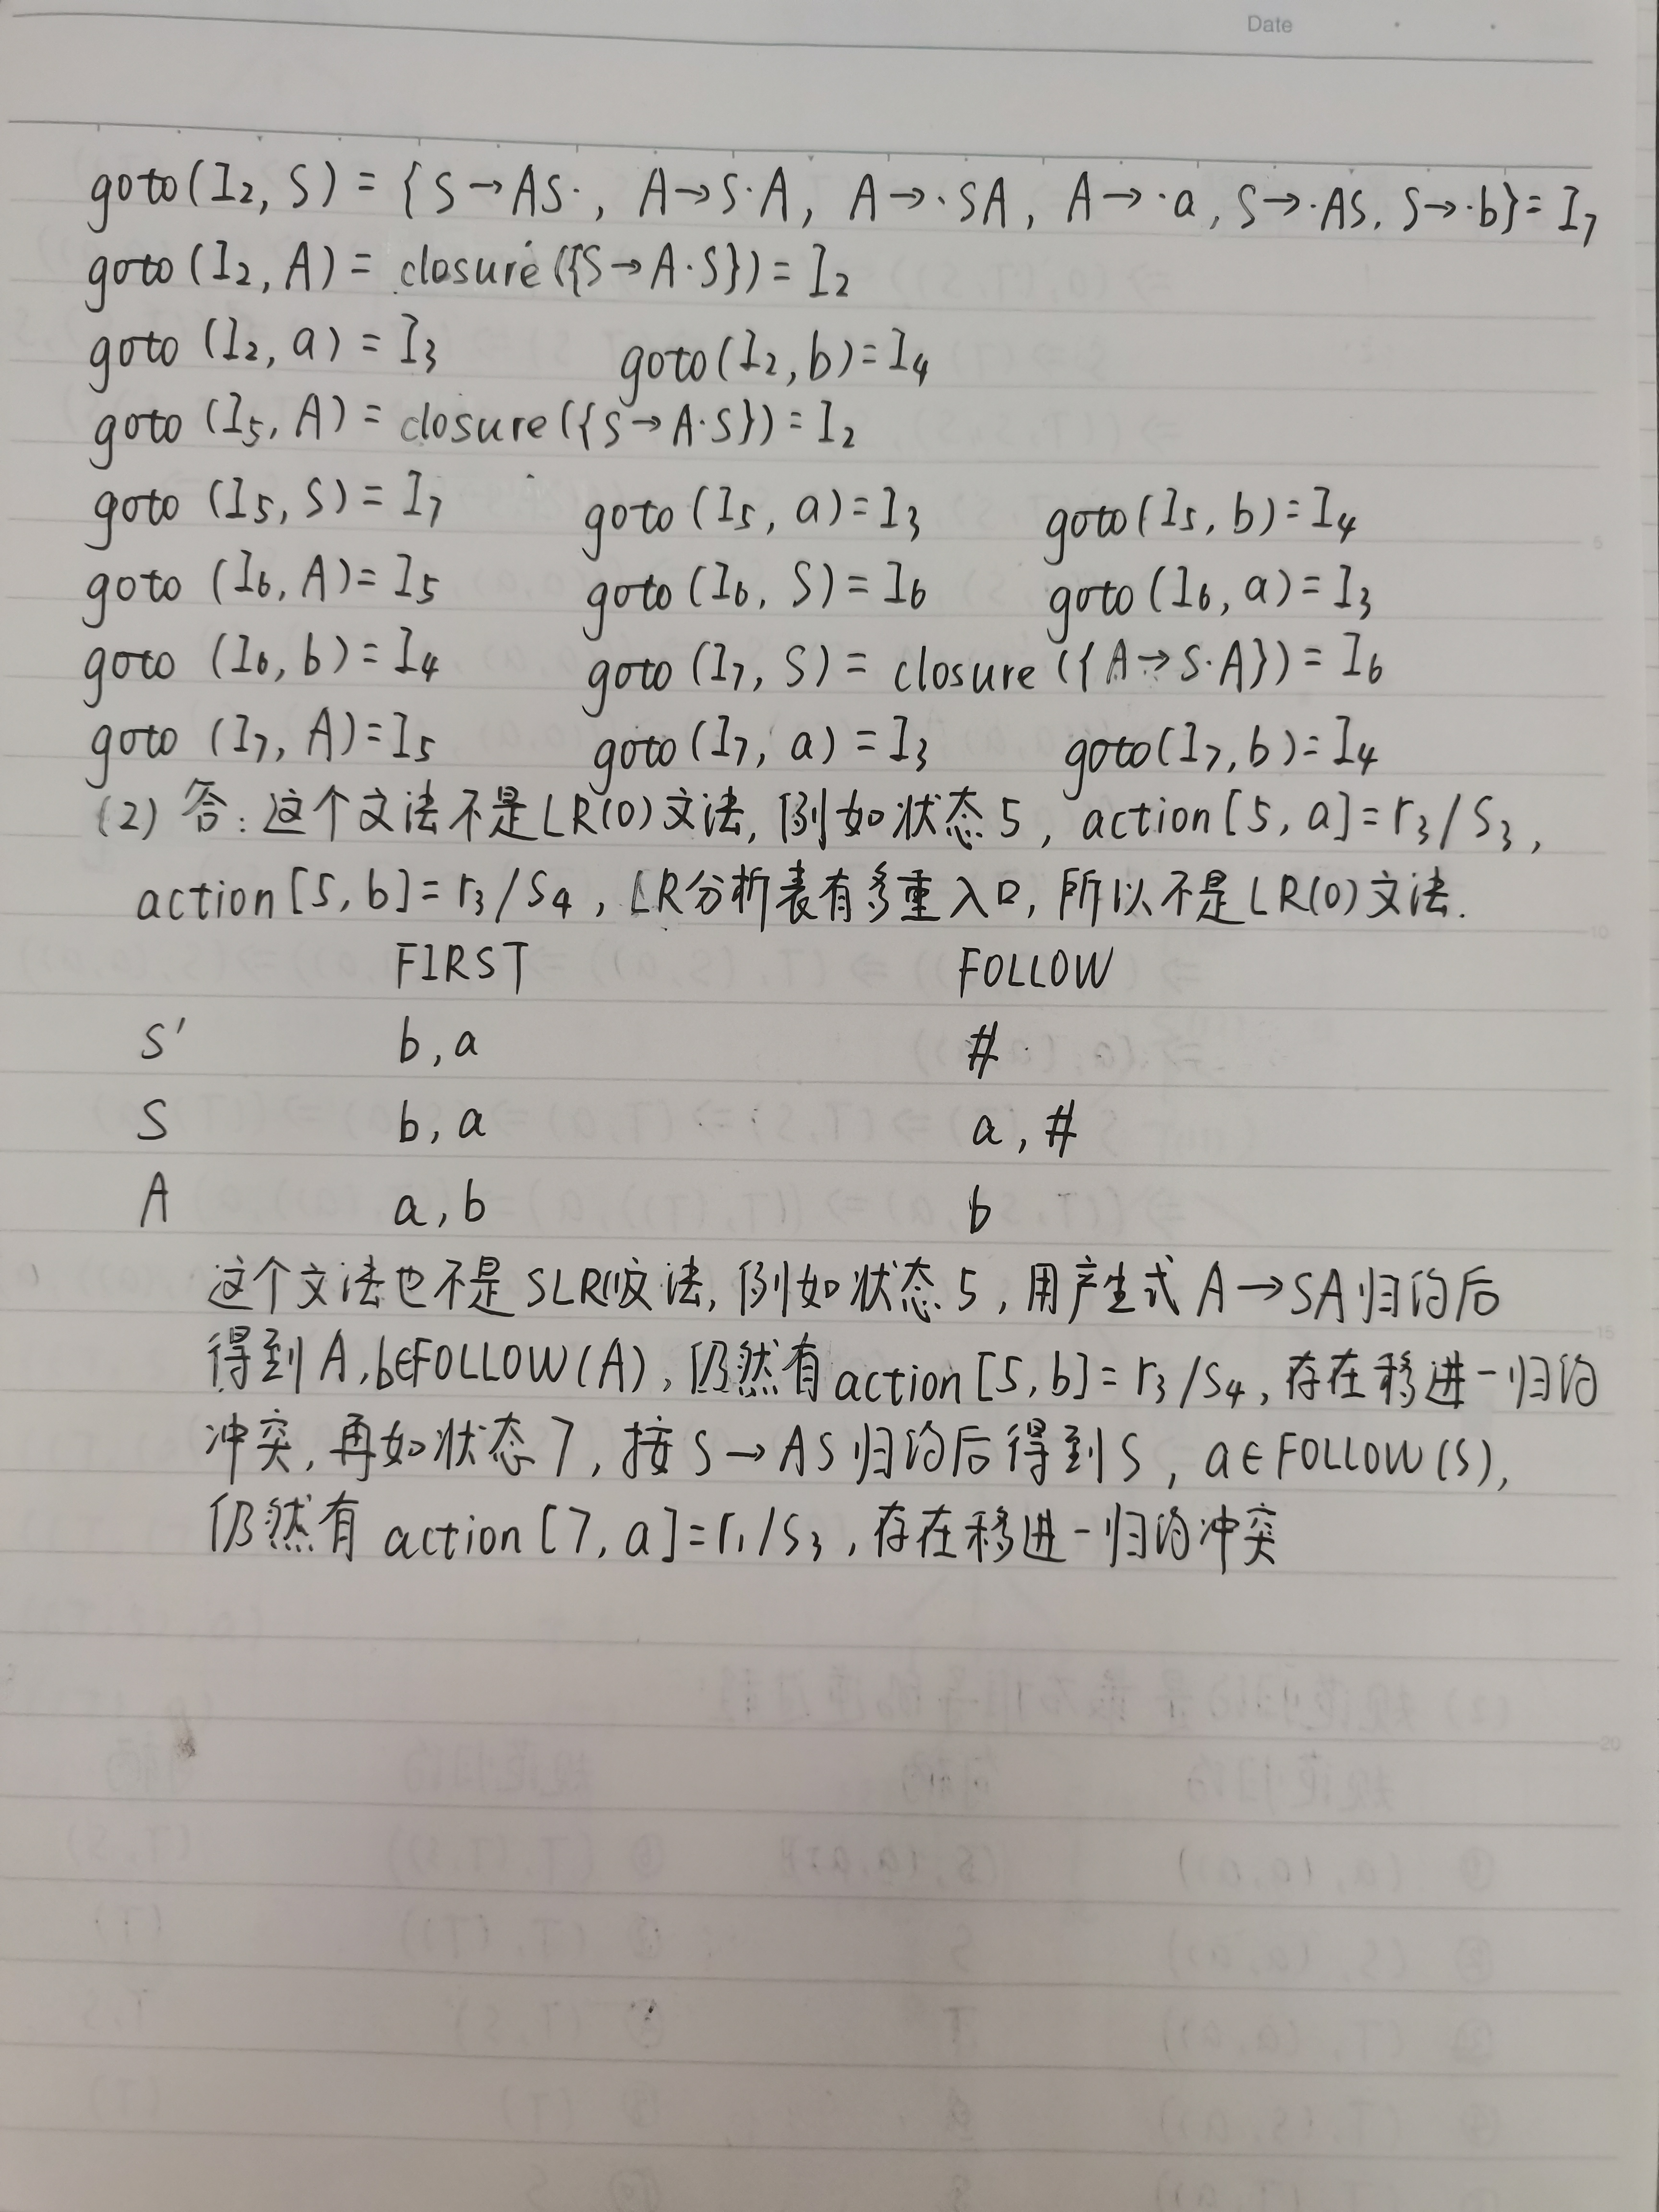 Date
goto(I₂, S) = {S→AS·, A→S·A, A→·SA, A→·a, S→·AS, S→·b} = I₇
goto(I₂, A) = closure({S→A·S}) = I₂
goto(I₂, a) = I₃ goto(I₂, b) = I₄
goto(I₅, A) = closure({S→A·S}) = I₂
goto(I₅, S) = I₇ goto(I₅, a) = I₃ goto(I₅, b) = I₄
goto(I₆, A) = I₅ goto(I₆, S) = I₆ goto(I₆, a) = I₃
goto(I₆, b) = I₄ goto(I₇, S) = closure({A→S·A}) = I₆
goto(I₇, A) = I₅ goto(I₇, a) = I₃ goto(I₇, b) = I₄
(2) 答：这个文法不是LR(0)文法, 例如状态5, action[5, a] = r₃/S₃,
action[5, b] = r₃/S₄, LR分析表有多重入口, 所以不是LR(0)文法.
FIRST FOLLOW
S' b, a #
S b, a a, #
A a, b b
这个文法也不是SLR(1)文法, 例如状态5, 用产生式A→SA归约后
得到A, b∈FOLLOW(A), 仍然有action[5, b] = r₃/S₄, 存在移进-归约
冲突, 再如状态7, 按S→AS归约后得到S, a∈FOLLOW(S),
仍然有action[7, a] = r₁/S₃, 存在移进-归约冲突
5
10
15
20